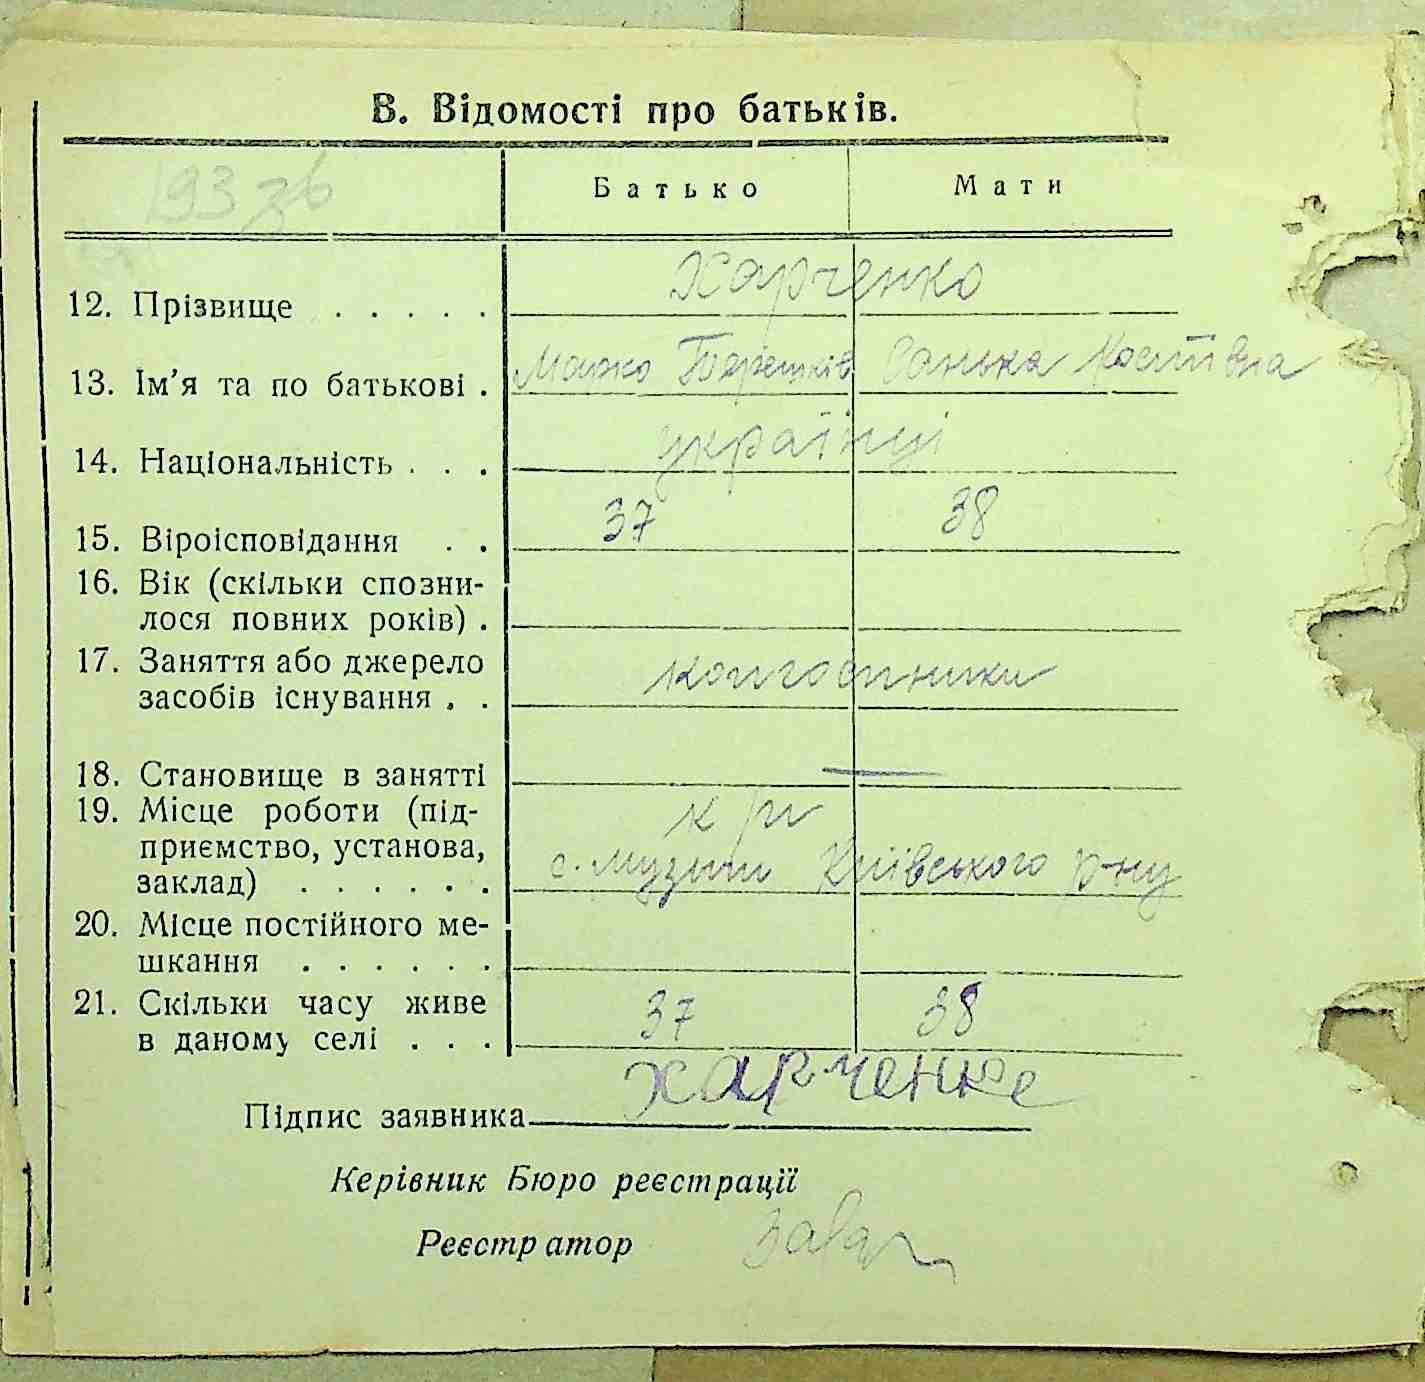 В. Відомості про батьків.
193 зв
Батько Мати
12. Прізвище . . . . . Харченко
13. Ім'я та по батькові . Марко Санька Костівна
14. Національність . . . українці
15. Віроісповідання . . 37 38
16. Вік (скільки спозни-
лося повних років) .
17. Заняття або джерело
засобів існування . . колгоспники
18. Становище в занятті —
19. Місце роботи (під-
приємство, установа,
заклад) . . . . . . с. Музичі Київського р-ну
20. Місце постійного ме-
шкання . . . . . .
21. Скільки часу живе
в даному селі . . . 37 38
Підпис заявника Харченко
Керівник Бюро реєстрації
Реєстратор